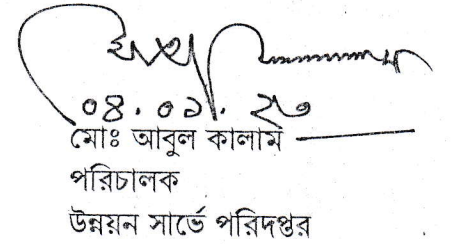 ০৪.০১.২৩
মোঃ আবুল কালাম
পরিচালক
উন্নয়ন সার্ভে পরিদপ্তর